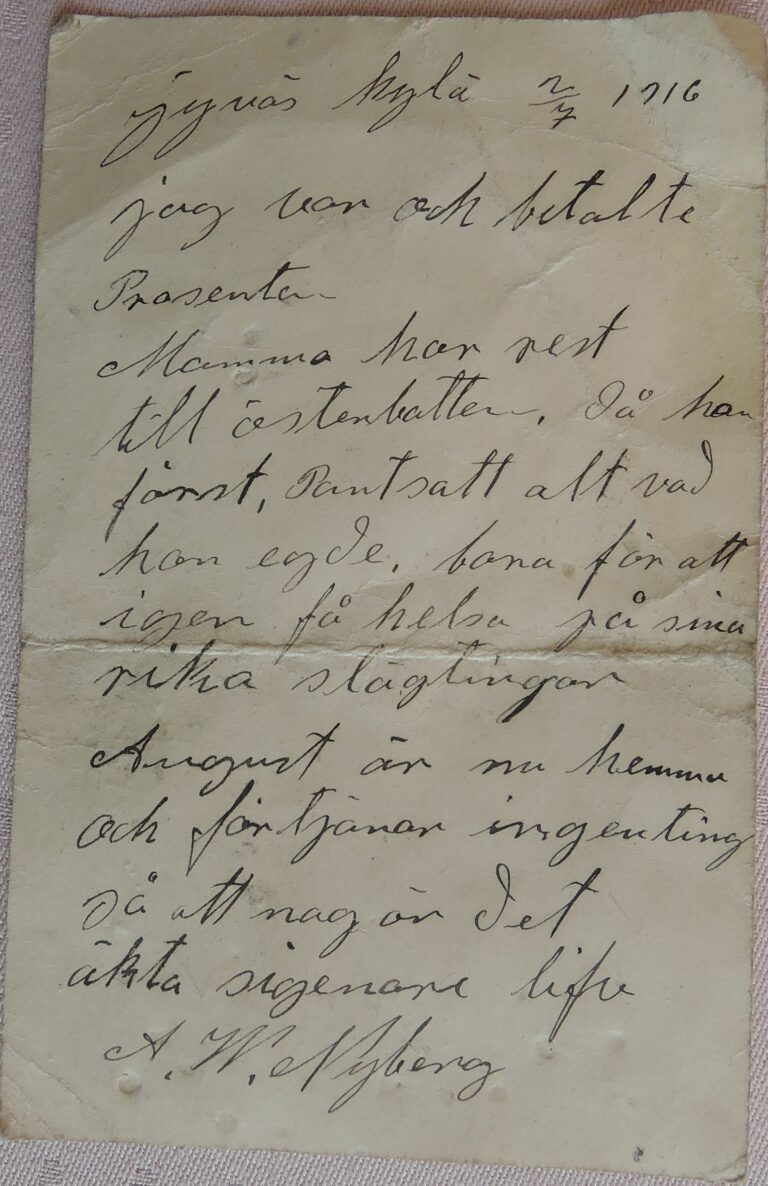 jyväs kylä 2/7 1916
jag var och betalte
Prosenten
Mamma har rest
till österbotten, då han
först, Pantsatt alt vad
han egde, bara för att
igen få helsa på sina
rika slägtingar
August är nu hemma
och förtjänar ingenting
så att nog är det
äkta sigenare life
A. W. Nyberg